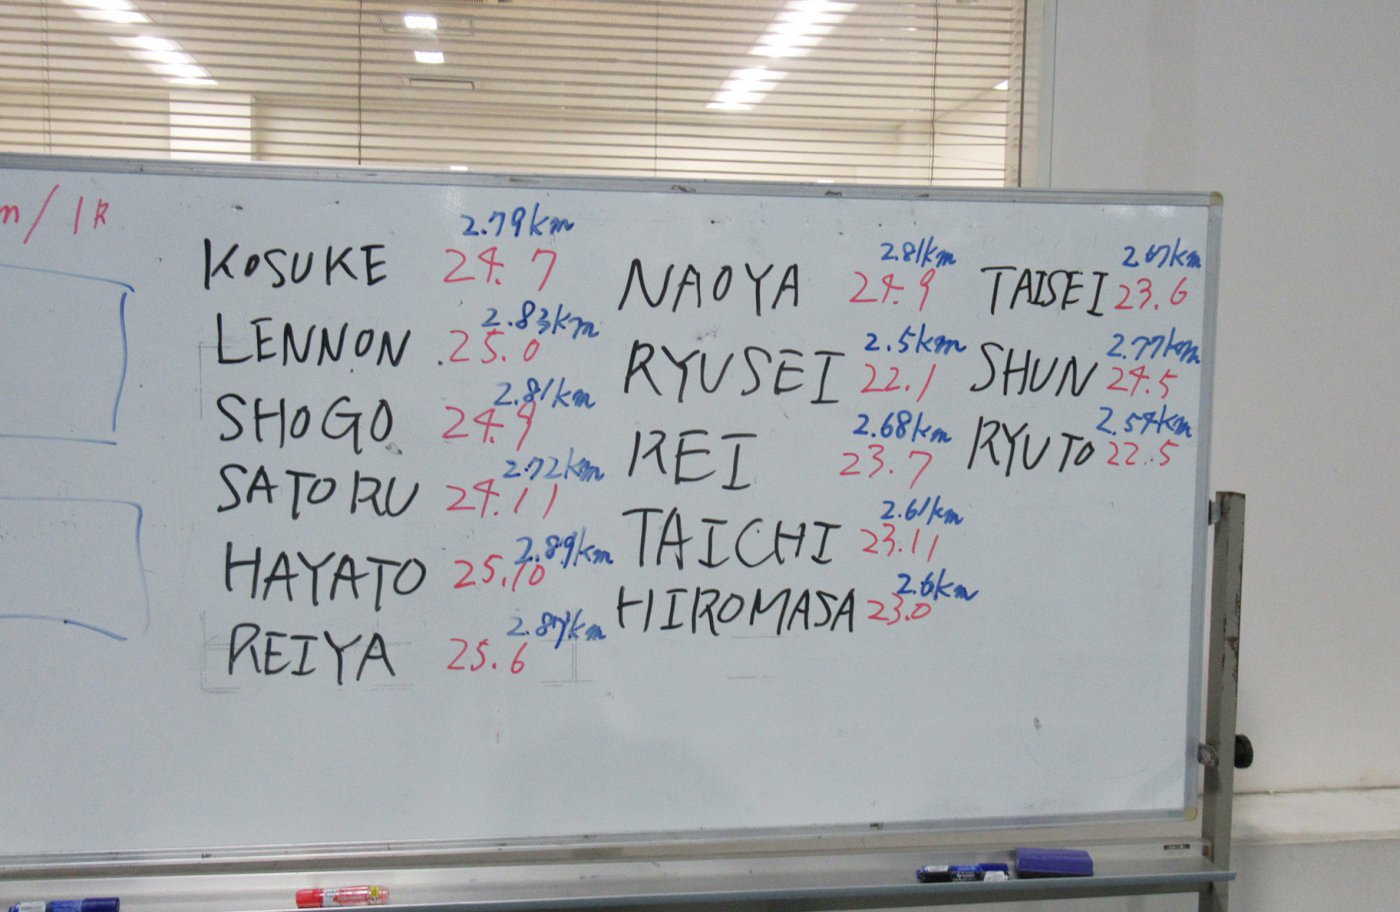 m/1k
KOSUKE 24.7 2.79km
LENNON 25.0 2.83km
SHOGO 24.9 2.81km
SATORU 24.11 2.72km
HAYATO 25.10 2.89km
REIYA 25.6 2.87km
NAOYA 24.9 2.81km
RYUSEI 22.1 2.5km
REI 23.7 2.68km
TAICHI 23.11 2.61km
HIROMASA 23.0 2.6km
TAISEI 23.6 2.67km
SHUN 24.5 2.77km
RYUTO 22.5 2.54km